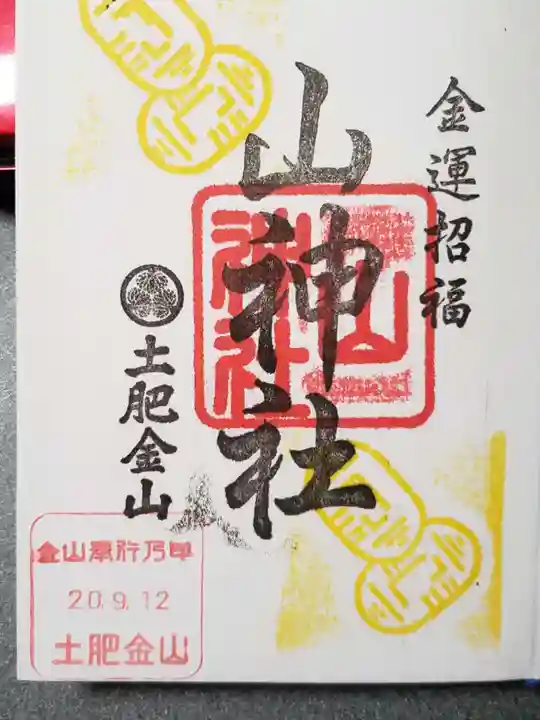 金運招福
山神社
土肥金山
金山奉行乃印
20.9.12
土肥金山